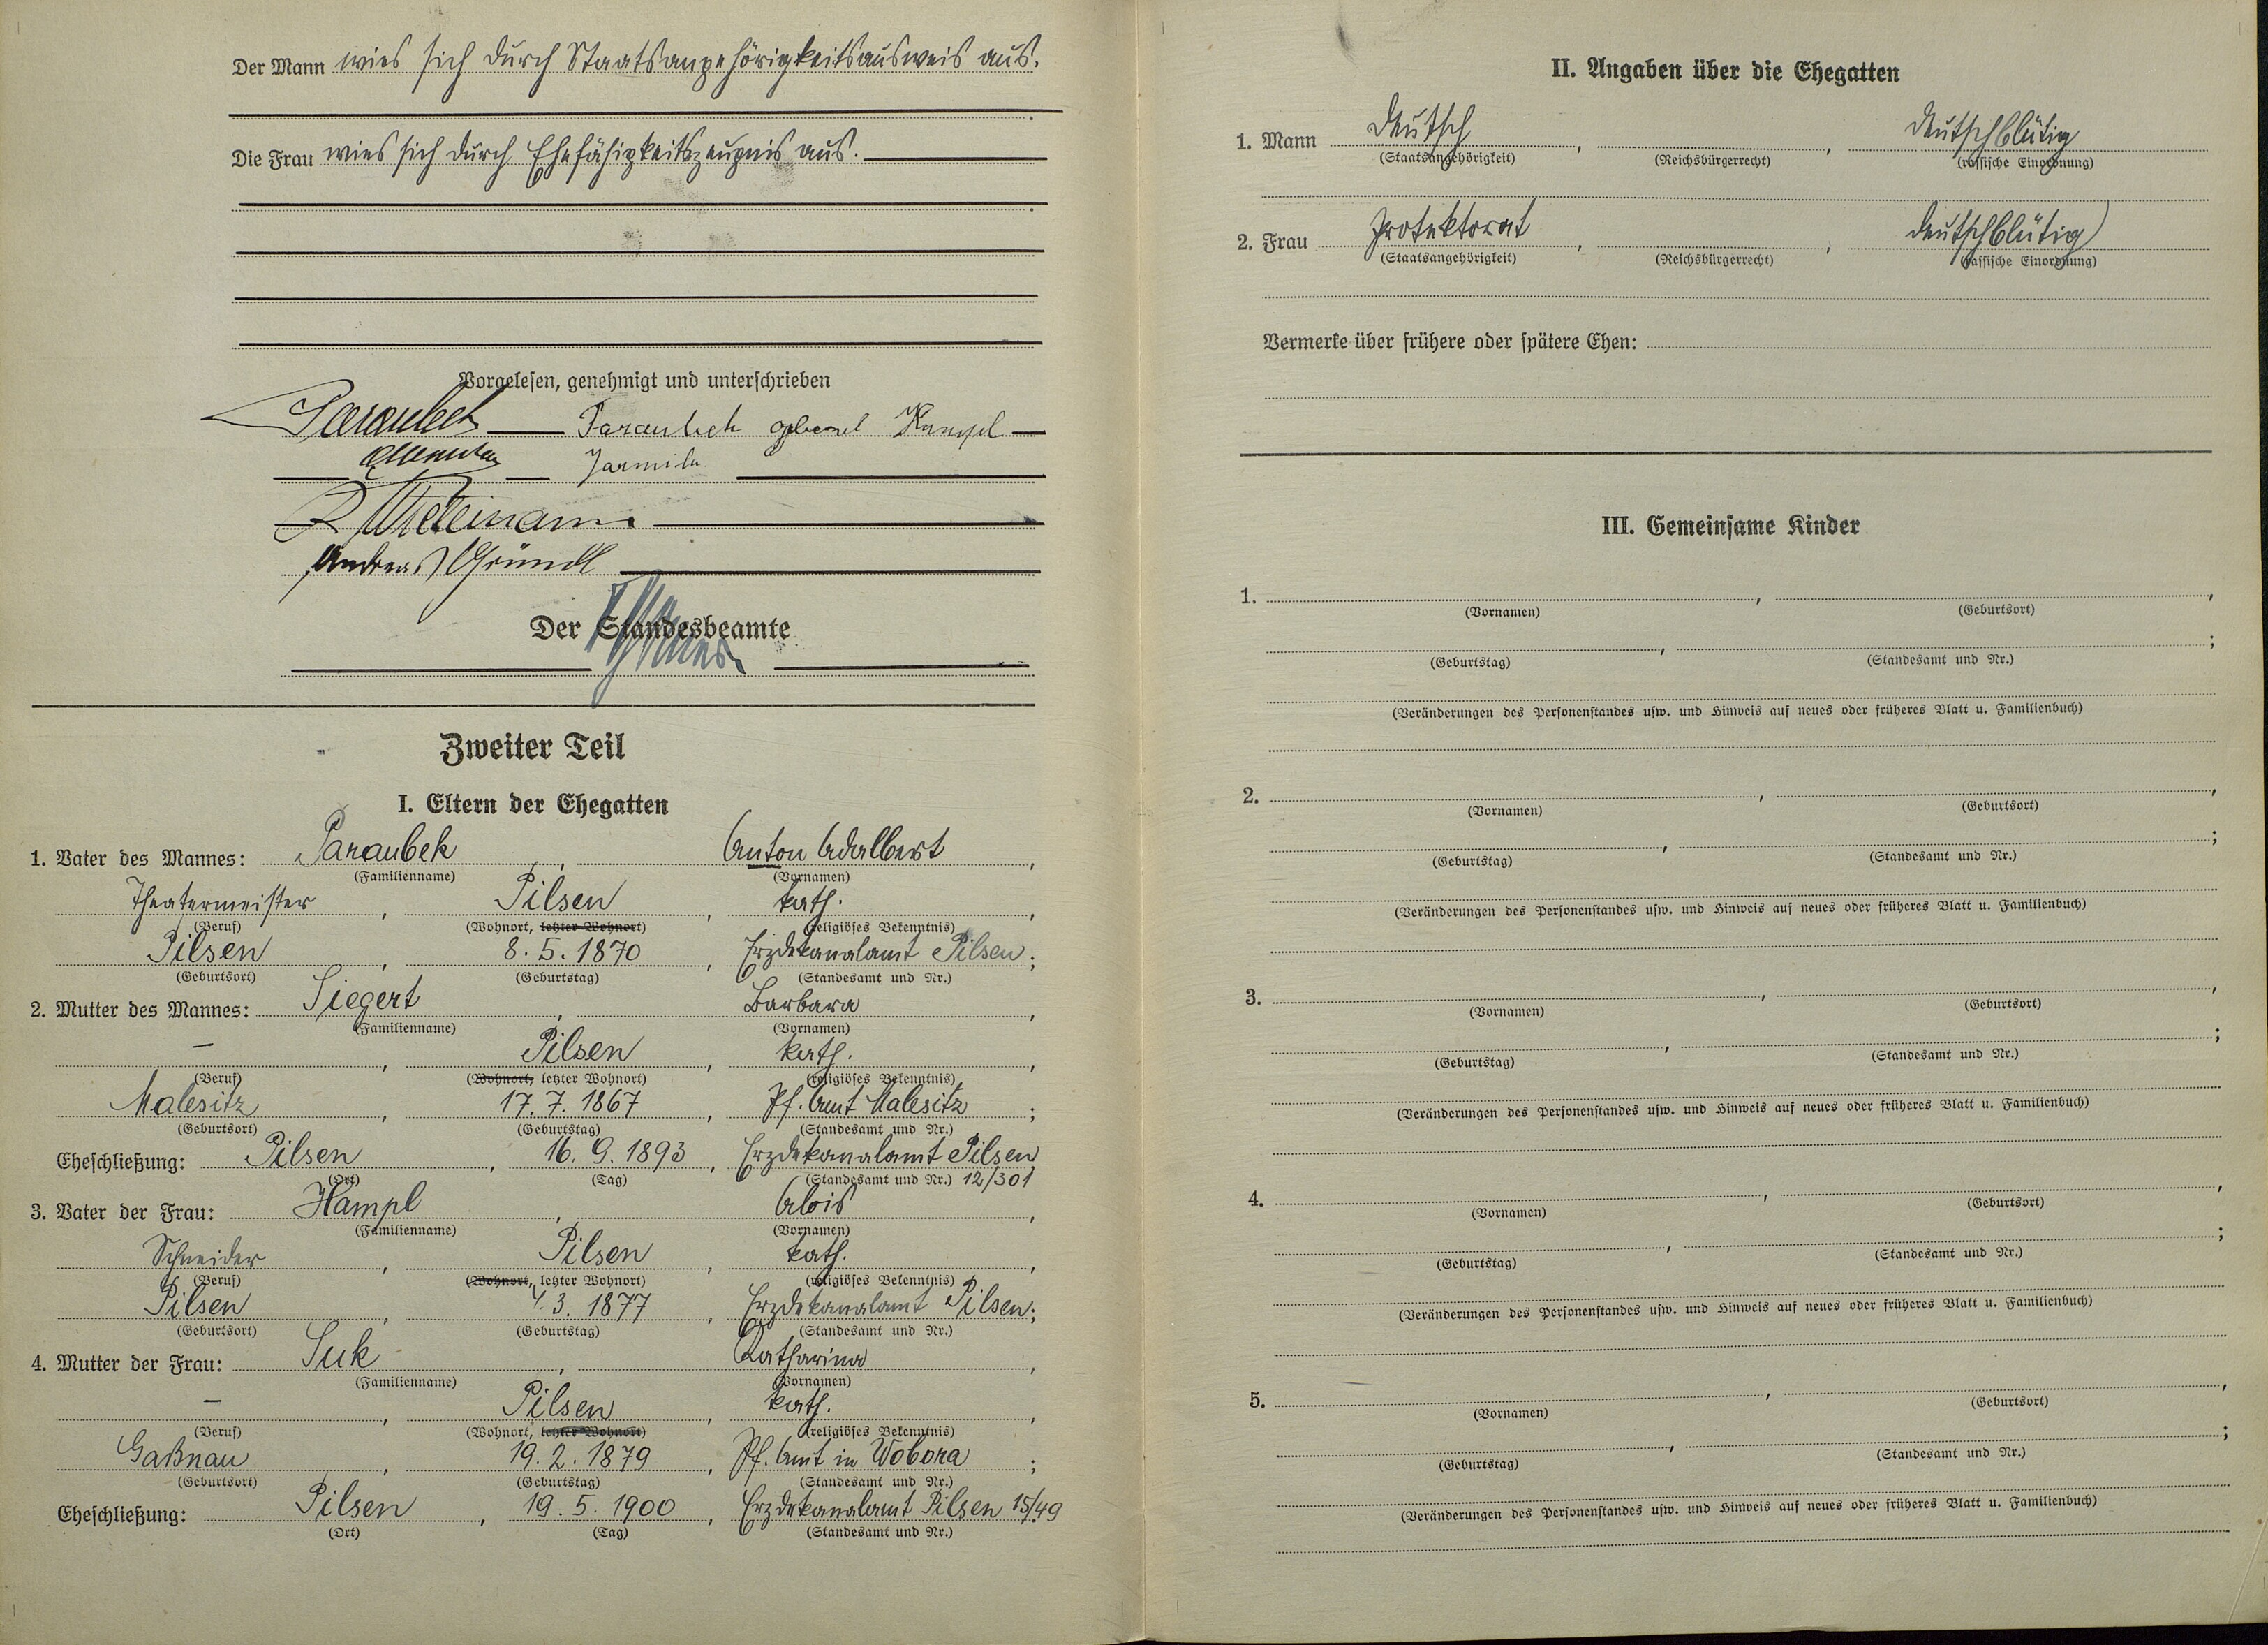 Der Mann wies sich durch Staatsangehörigkeitsausweis aus.
Die Frau wies sich durch Ehefähigkeitszeugnis aus.
Vorgelesen, genehmigt und unterschrieben
Paraubek Paraubek geborene Hampl
Jarmila
Andreas Gründl
Der Standesbeamte
Zweiter Teil
I. Eltern der Ehegatten
1. Vater des Mannes: Paraubek, Anton Adalbert,
(Familienname) (Vornamen)
Theatermeister, Pilsen, kath.,
(Beruf) (Wohnort, letzter Wohnort) (religiöses Bekenntnis)
Pilsen, 8. 5. 1870, Erzdekanalamt Pilsen;
(Geburtsort) (Geburtstag) (Standesamt und Nr.)
2. Mutter des Mannes: Siegert, Barbara,
(Familienname) (Vornamen)
–, Pilsen, kath.,
(Beruf) (Wohnort, letzter Wohnort) (religiöses Bekenntnis)
Malesitz, 17. 7. 1867, Pf. Amt Malesitz;
(Geburtsort) (Geburtstag) (Standesamt und Nr.)
Eheschließung: Pilsen, 16. 9. 1893, Erzdekanalamt Pilsen
(Ort) (Tag) (Standesamt und Nr.) 12/301
3. Vater der Frau: Hampl, Alois,
(Familienname) (Vornamen)
Schneider, Pilsen, kath.,
(Beruf) (Wohnort, letzter Wohnort) (religiöses Bekenntnis)
Pilsen, 3. 1877, Erzdekanalamt Pilsen;
(Geburtsort) (Geburtstag) (Standesamt und Nr.)
4. Mutter der Frau: Suk, Katharina,
(Familienname) (Vornamen)
–, Pilsen, kath.,
(Beruf) (Wohnort, letzter Wohnort) (religiöses Bekenntnis)
Gaßnau, 19. 2. 1879, Pf. Amt in Wobora;
(Geburtsort) (Geburtstag) (Standesamt und Nr.)
Eheschließung: Pilsen, 19. 5. 1900, Erzdekanalamt Pilsen 15/49
(Ort) (Tag) (Standesamt und Nr.)
II. Angaben über die Ehegatten
1. Mann deutsch, , deutschblütig
(Staatsangehörigkeit) (Reichsbürgerrecht) (rassische Einordnung)
2. Frau Protektorat, , deutschblütig
(Staatsangehörigkeit) (Reichsbürgerrecht) (rassische Einordnung)
Vermerke über frühere oder spätere Ehen:
III. Gemeinsame Kinder
1. , ,
(Vornamen) (Geburtsort)
, ;
(Geburtstag) (Standesamt und Nr.)
(Veränderungen des Personenstandes usw. und Hinweis auf neues oder früheres Blatt u. Familienbuch)
2. , ,
(Vornamen) (Geburtsort)
, ;
(Geburtstag) (Standesamt und Nr.)
(Veränderungen des Personenstandes usw. und Hinweis auf neues oder früheres Blatt u. Familienbuch)
3. , ,
(Vornamen) (Geburtsort)
, ;
(Geburtstag) (Standesamt und Nr.)
(Veränderungen des Personenstandes usw. und Hinweis auf neues oder früheres Blatt u. Familienbuch)
4. , ,
(Vornamen) (Geburtsort)
, ;
(Geburtstag) (Standesamt und Nr.)
(Veränderungen des Personenstandes usw. und Hinweis auf neues oder früheres Blatt u. Familienbuch)
5. , ,
(Vornamen) (Geburtsort)
, ;
(Geburtstag) (Standesamt und Nr.)
(Veränderungen des Personenstandes usw. und Hinweis auf neues oder früheres Blatt u. Familienbuch)